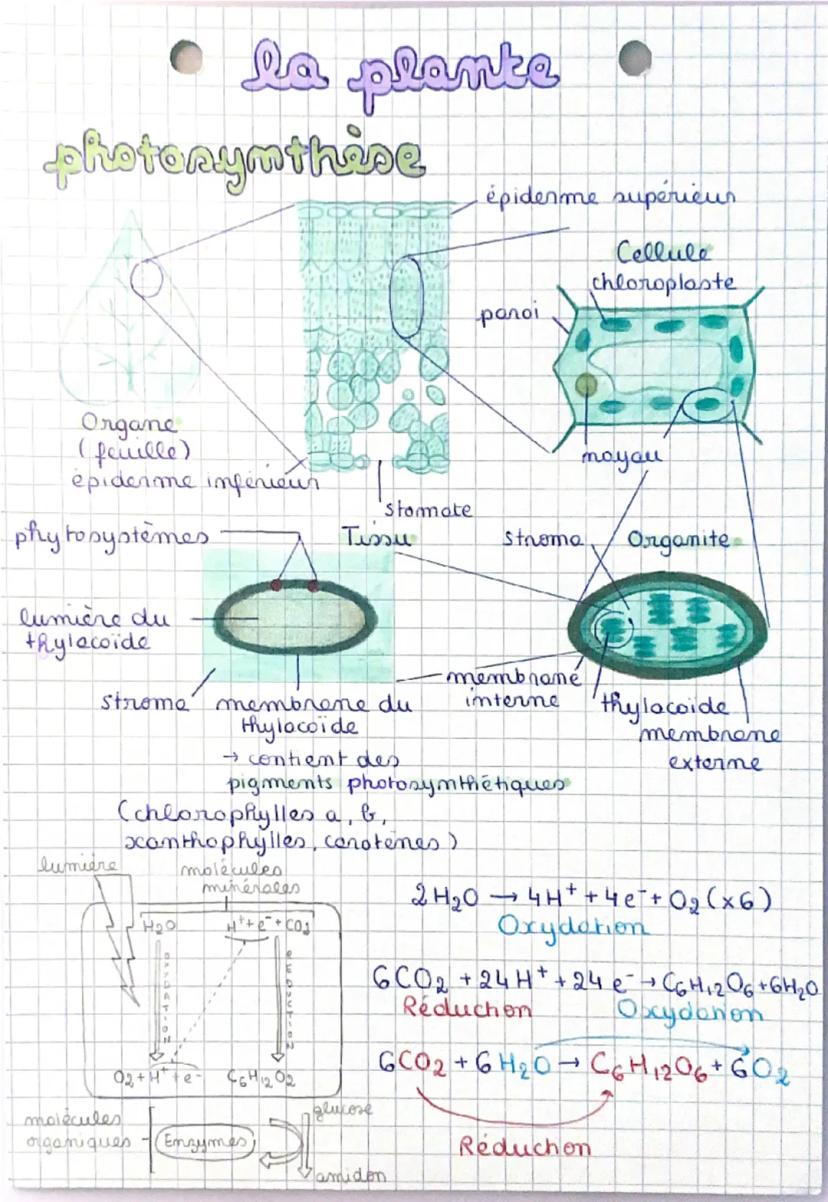 la plante
photosynthèse
épiderme supérieur
Cellule
chloroplaste
paroi
Organe
(feuille)
épiderme inférieur
noyau
stomate
Tissu
phytosystèmes
stroma
Organite
lumière du
thylacoïde
stroma
membrane du
thylacoïde
membrane
interne
thylacoïde
membrane
externe
→ contient des
pigments photosynthétiques
(chlorophylles a, b,
xanthophylles, carotènes)
lumière
molécules
minérales
H₂O
H⁺ + e⁻ + CO₂
oxydation
réduction
O₂ + H⁺ + e⁻
C₆H₁₂O₂
molécules
organiques
Enzymes
glucose
amidon
2H₂O → 4H⁺ + 4e⁻ + O₂ (x6)
Oxydation
6CO₂ + 24H⁺ + 24 e⁻ → C₆H₁₂O₆ + 6H₂O
Réduction
Oxydation
6CO₂ + 6H₂O → C₆H₁₂O₆ + 6O₂
Réduction